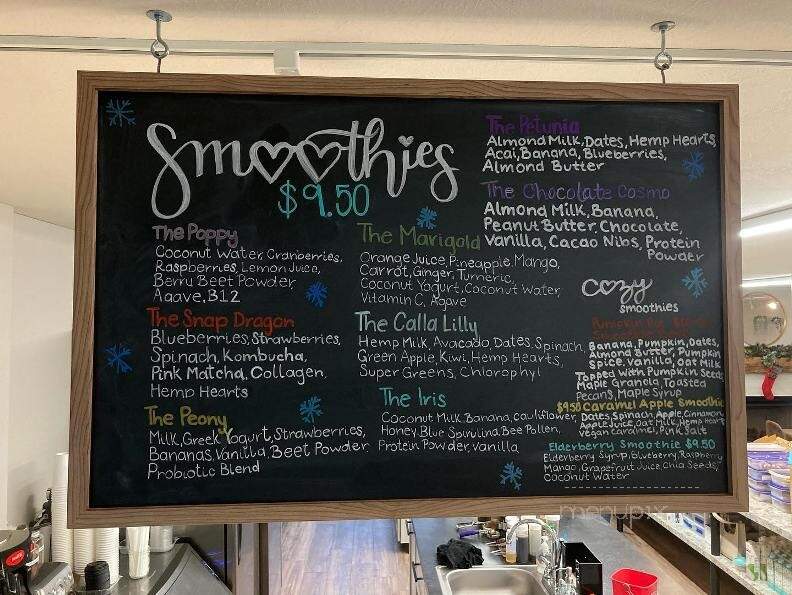 Smoothies
$9.50
The Poppy
Coconut Water, Cranberries,
Raspberries, Lemon Juice,
Berry Beet Powder
Agave, B12
The Snap Dragon
Blueberries, Strawberries,
Spinach, Kombucha,
Pink Matcha, Collagen,
Hemp Hearts
The Peony
Milk, Greek Yogurt, Strawberries,
Bananas, Vanilla, Beet Powder
Probiotic Blend
The Marigold
Orange Juice, Pineapple, Mango,
Carrot, Ginger, Turmeric,
Coconut Yogurt, Coconut Water,
Vitamin C, Agave
The Calla Lilly
Hemp Milk, Avocado, Dates, Spinach,
Green Apple, Kiwi, Hemp Hearts,
Super Greens, Chlorophyl
The Iris
Coconut Milk, Banana, Cauliflower,
Honey, Blue Spirulina, Bee Pollen,
Protein Powder, Vanilla
The Petunia
Almond Milk, Dates, Hemp Hearts,
Acai, Banana, Blueberries,
Almond Butter
The Chocolate Cosmo
Almond Milk, Banana,
Peanut Butter, Chocolate,
Vanilla, Cacao Nibs, Protein
Powder
cozy
smoothies
Pumpkin Pie
Banana, Pumpkin, Dates,
Almond Butter, Pumpkin
Spice, Vanilla, Oat Milk
Topped with Pumpkin Seed
Maple Granola, Toasted
Pecans, Maple Syrup
$9.50 Caramel Apple Smoothie
Dates, Spinach, Apple, Cinnamon,
Apple Juice, Oat Milk, Hemp Heart
Vegan Caramel, Pink Salt
Elderberry Smoothie $9.50
Elderberry Syrup, Blueberry, Raspberry
Mango, Grapefruit Juice, Chia Seeds,
Coconut Water
menupix